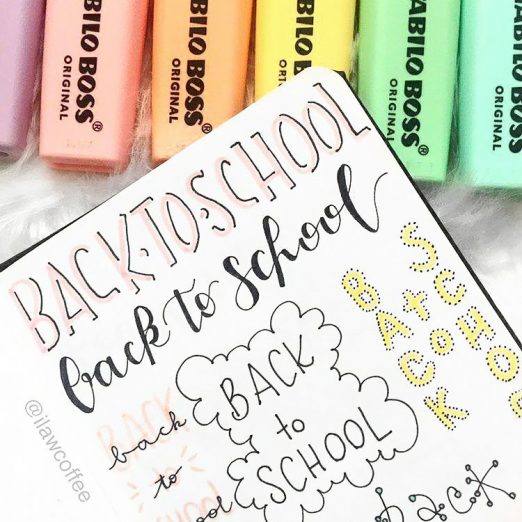 ABILO BOSS®
ORIGINAL
ABILO BOSS®
ORIGINAL
ABILO BOSS
ORIGINAL
ABILO BOSS®
ORIGINAL
BOSS®
ORIGINAL
BACK·TO·SCHOOL
back to school
BACK
to
SCHOOL
BACK
to
SCHOOL
BACK
back
to
to
SCHOOL
back
@ilawcoffee